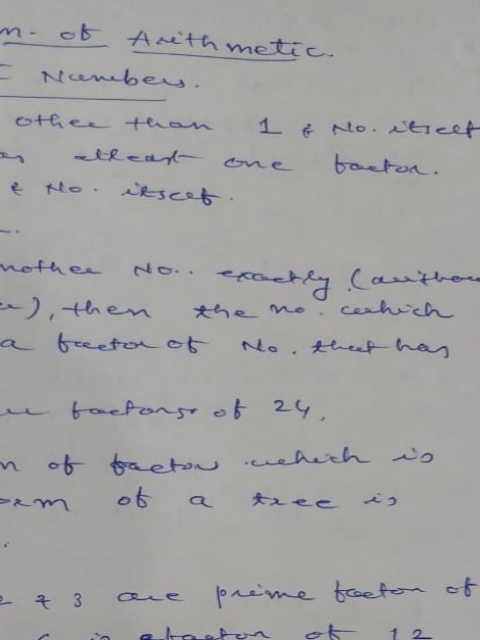 m of Arithmetic.
Numbers.
other than 1 & No. itself
atleast one factor.
& No. itself.
another No.. exactly (withou
), then the no. which
a factor of No. that has
factors of 24,
n of factor which is
orm of a tree is
2 & 3 are prime factor of
6 is a factor of 12